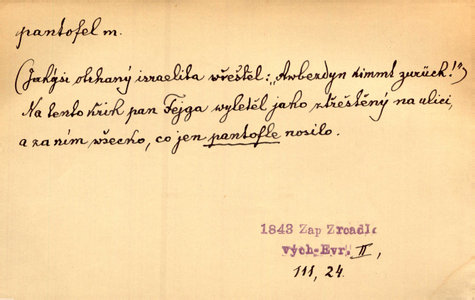 pantofel m.
(Jakýsi otrhaný israelita vřeštěl: „Awberdyn kimmt zurück!")
Na tento křik pan Fejga vyletěl jako ztřeštěný na ulici,
a za ním všecko, co jen pantofle nosilo.
1843 Zap Zrcadlo
vých-Evr. II,
111, 24.